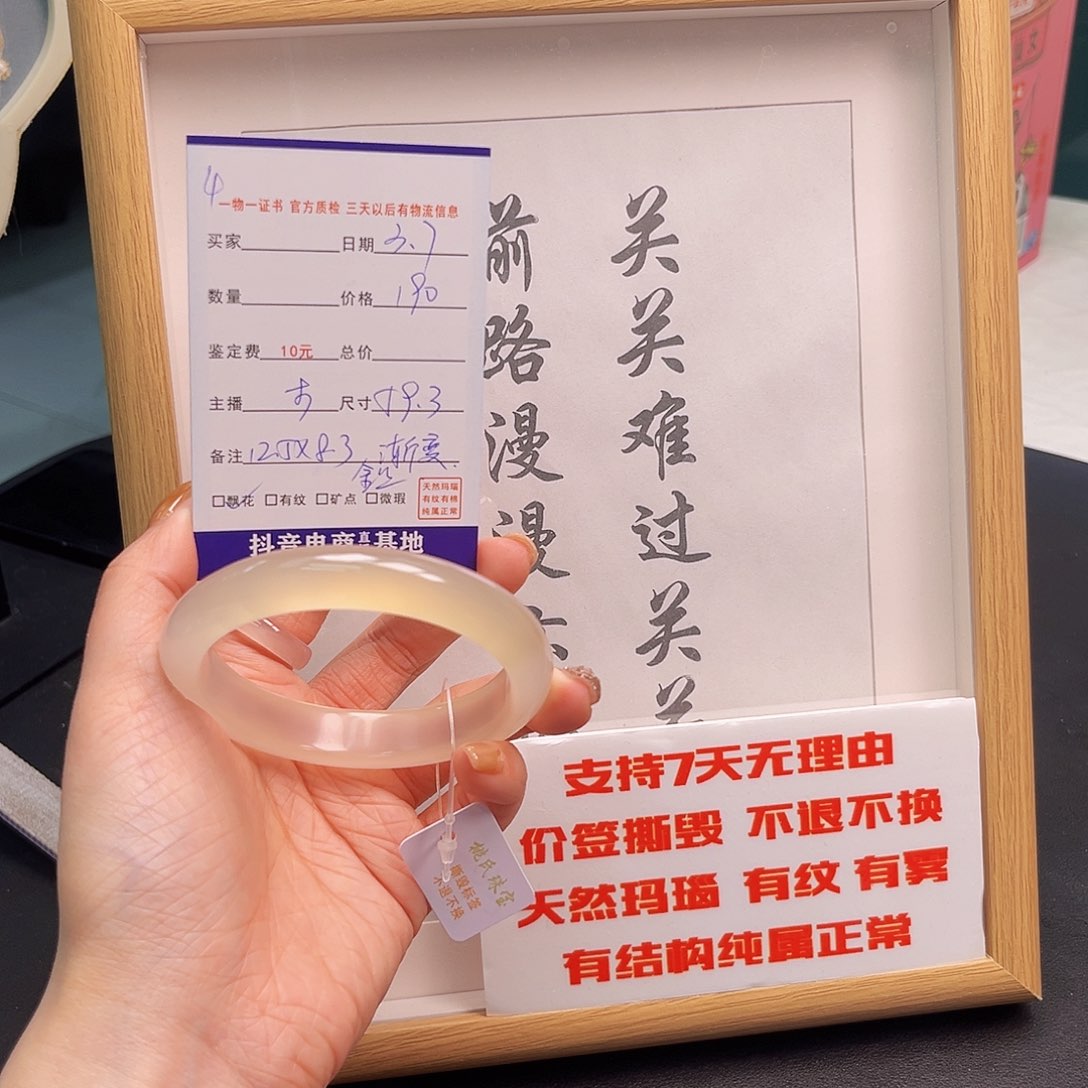 4
一物一证书 官方质检 三天以后有物流信息
买家 日期 3.7
数量 价格 190
鉴定费 10元 总价
主播 尺寸 59.3
备注 12.5X8.3 渐变
□飘花 □有纹 □矿点 □微瑕
天然玛瑙
有纹有棉
纯属正常
抖音电商直播基地
关关难过关关
前路漫漫
支持7天无理由
价签撕毁 不退不换
天然玛瑙 有纹 有雾
有结构纯属正常
氏珠宝
撕毁标签
不退不换